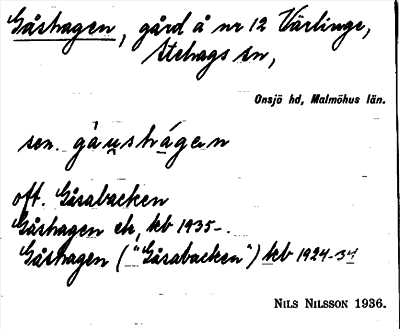 Gåshagen, gård å nr 12 Värlinge,
Stehags sn,
Onsjö hd, Malmöhus län.
sen. gåu̯shágen
oft. Gåsabacken
Gåshagen ek, kb 1935-.
Gåshagen ("Gåsabacken") kb 1924-34
NILS NILSSON 1936.